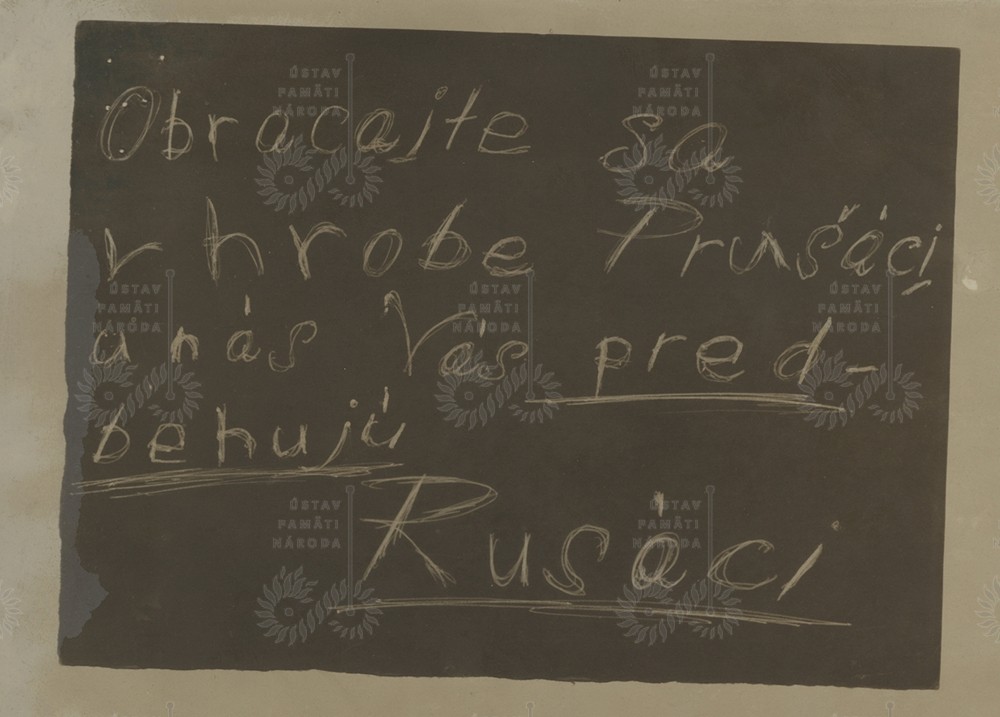 Obracajte sa
v hrobe Prušáci
u nás Vás pred-
behujú
Rusáci
ÚSTAV
PAMÄTI
NÁRODA
ÚSTAV
PAMÄTI
NÁRODA
ÚSTAV
PAMÄTI
NÁRODA
ÚSTAV
PAMÄTI
NÁRODA
ÚSTAV
PAMÄTI
NÁRODA
ÚSTAV
PAMÄTI
NÁRODA
ÚSTAV
PAMÄTI
NÁRODA